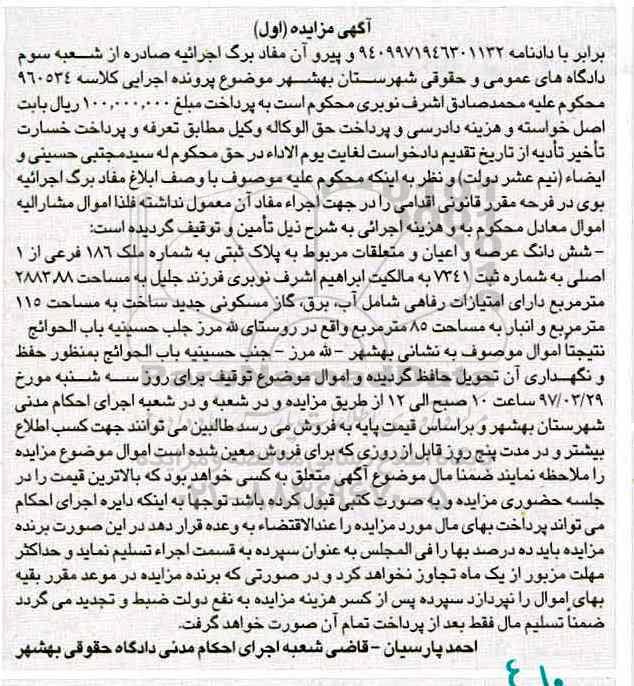 آگهی مزایده (اول)
برابر با دادنامه ۹۴۰۹۹۷۱۹۴۶۳۰۱۱۳۲ و پیرو آن مفاد برگ اجرائیه صادره از شعبه سوم
دادگاه های عمومی و حقوقی شهرستان بهشهر موضوع پرونده اجرایی کلاسه ۹۶۰۵۳۴
محکوم علیه محمدصادق اشرف نوبری محکوم است به پرداخت مبلغ ۱۰۰,۰۰۰,۰۰۰ ریال بابت
اصل خواسته و هزینه دادرسی و پرداخت حق الوکاله وکیل مطابق تعرفه و پرداخت خسارت
تأخیر تأدیه از تاریخ تقدیم دادخواست لغایت یوم الاداء در حق محکوم له سیدمجتبی حسینی و
ایضاء (نیم عشر دولت) و نظر به اینکه محکوم علیه موصوف با وصف ابلاغ مفاد برگ اجرائیه
بوی در فرجه مقرر قانونی اقدامی را در جهت اجراء مفاد آن معمول نداشته فلذا اموال مشارالیه
اموال معادل محکوم به و هزینه اجرائی به شرح ذیل تأمین و توقیف گردیده است:
- شش دانگ عرصه و اعیان و متعلقات مربوط به پلاک ثبتی به شماره ملک ۱۸۶ فرعی از ۱
اصلی به شماره ثبت ۷۳۴۱ به مالکیت ابراهیم اشرف نوبری فرزند جلیل به مساحت ۲۸۸۳٫۸۸
مترمربع دارای امتیازات رفاهی شامل آب، برق، گاز مسکونی جدید ساخت به مساحت ۱۱۵
مترمربع و انبار به مساحت ۸۵ مترمربع واقع در روستای لله مرز جلب حسینیه باب الحوائج
نتیجتاً اموال موصوف به نشانی بهشهر - لله مرز - جنب حسینیه باب الحوائج بمنظور حفظ
و نگهداری آن تحویل حافظ گردیده و اموال موضوع توقیف برای روز سه شنبه مورخ
۹۷/۰۳/۲۹ ساعت ۱۰ صبح الی ۱۲ از طریق مزایده و در شعبه و در شعبه اجرای احکام مدنی
شهرستان بهشهر و براساس قیمت پایه به فروش می رسد طالبین می توانند جهت کسب اطلاع
بیشتر و در مدت پنج روز قابل از روزی که برای فروش معین شده است اموال موضوع مزایده
را ملاحظه نمایند ضمناً مال موضوع آگهی متعلق به کسی خواهد بود که بالاترین قیمت را در
جلسه حضوری مزایده و به صورت کتبی قبول کرده باشد توجهاً به اینکه دایره اجرای احکام
می تواند پرداخت بهای مال مورد مزایده را عندالاقتضاء به وعده قرار دهد در این صورت برنده
مزایده باید ده درصد بها را فی المجلس به عنوان سپرده به قسمت اجراء تسلیم نماید و حداکثر
مهلت مزبور از یک ماه تجاوز نخواهد کرد و در صورتی که برنده مزایده در موعد مقرر بقیه
بهای اموال را نپردازد سپرده پس از کسر هزینه مزایده به نفع دولت ضبط و تجدید می گردد
ضمناً تسلیم مال فقط بعد از پرداخت تمام آن صورت خواهد گرفت.
احمد پارسیان - قاضی شعبه اجرای احکام مدنی دادگاه حقوقی بهشهر